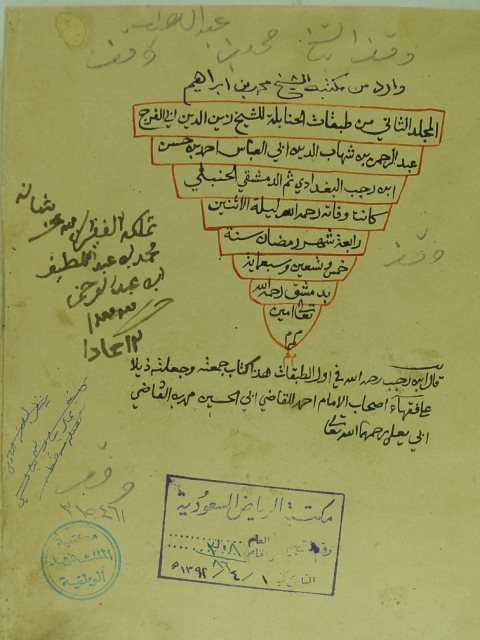 وقف الشيخ محمد بن عبد اللطيف
وقف
وارد من مكتبة الشيخ محمد بن ابراهيم
المجلد الثاني من طبقات الحنابلة للشيخ زين الدين ابي الفرج
عبد الرحمن بن شهاب الدين ابي العباس احمد بن حسن
ابن رجب البغدادي ثم الدمشقي الحنبلي
كانت وفاته رحمه الله ليلة الاثنين
رابعة شهر رمضان سنة
خمس وتسعين وسبعماية
بدمشق رحمه الله
تعالى امين
م م
م
تملكه الفقير
محمد بن عبد اللطيف
ابن عبد الرحمن
وقف
قال ابن رجب رحمه الله في اول الطبقات هذا كتاب جمعته وجعلته ذيلا
على
فقهاء اصحاب الامام احمد للقاضي ابي الحسين محمد بن القاضي
ابي يعلى رحمهما الله تعالى
وقف
مكتبة الرياض السعودية
رقم
العام
٣٠٨
والخاص
٨٦
التاريخ ١ / ٤ / ١٣٩٢ه
مكتبة
الملك فهد
الوطنية